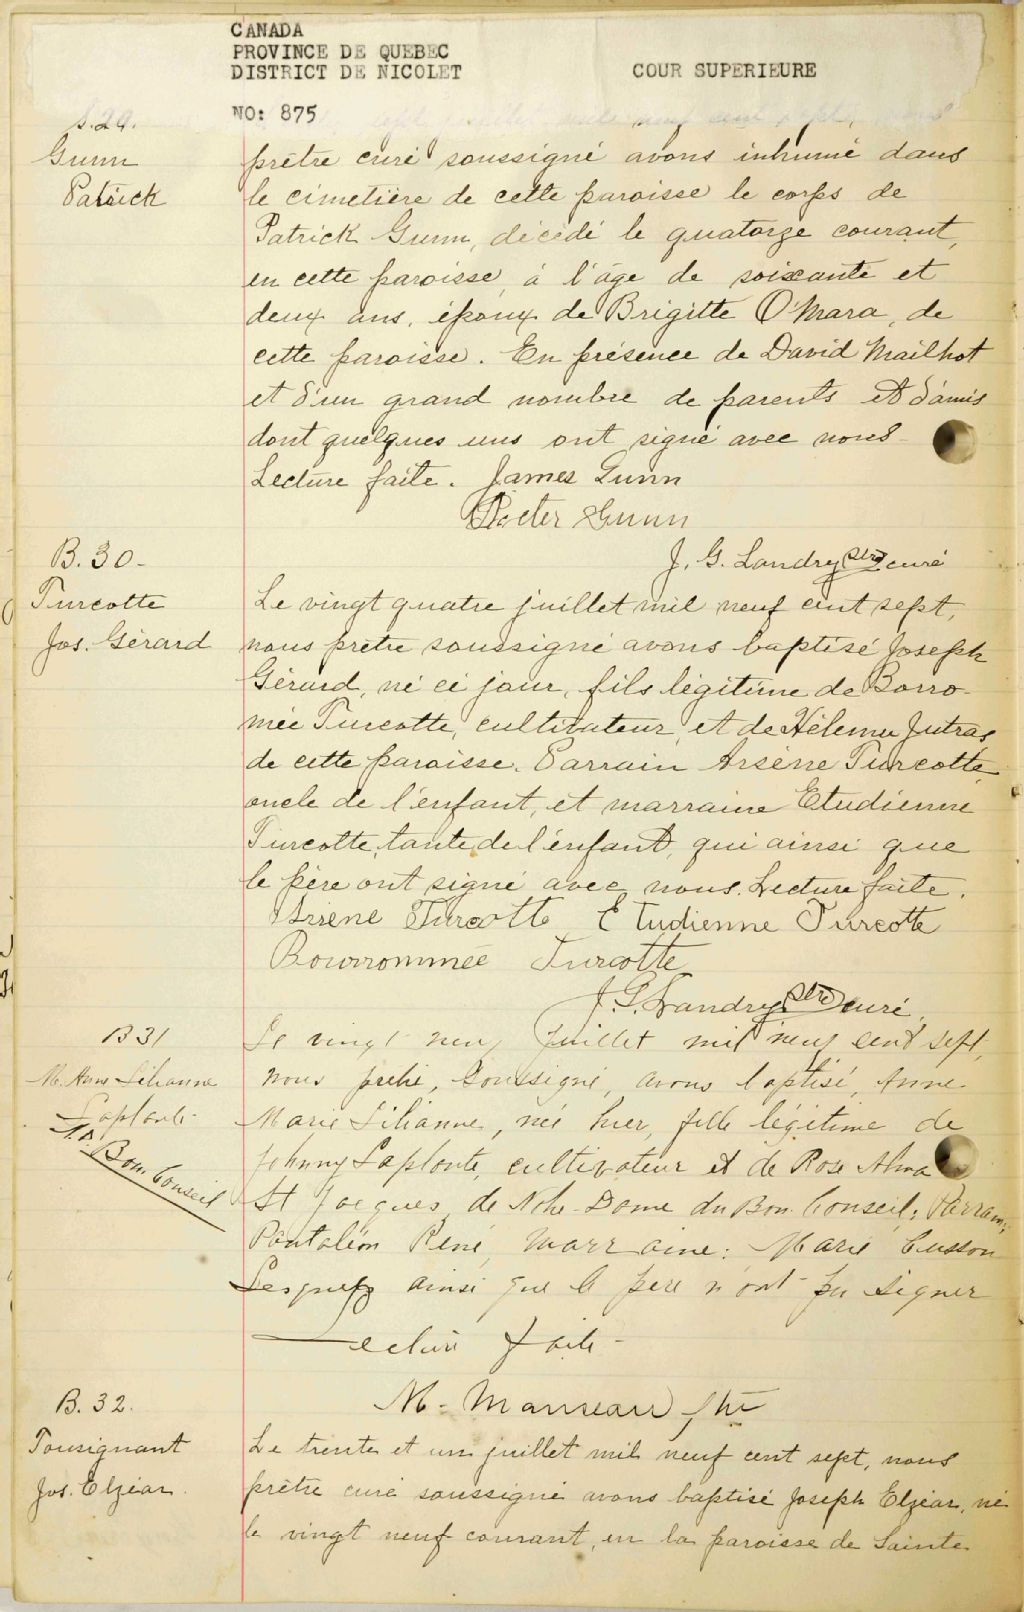 CANADA
PROVINCE DE QUEBEC
DISTRICT DE NICOLET
COUR SUPERIEURE
NO: 875
S.29.
Gunn
Patrick
prêtre curé soussigné avons inhumé dans
le cimetière de cette paroisse le corps de
Patrick Gunn, décédé le quatorze courant,
en cette paroisse, à l'âge de soixante et
deux ans, époux de Brigitte O'Mara, de
cette paroisse. En présence de David Mailhot
et d'un grand nombre de parents et d'amis
dont quelques uns ont signé avec nous
Lecture faite. James Gunn
Gunn
J. G. Landry ptre curé
B.30-
Turcotte
Jos. Gérard
Le vingt quatre juillet mil neuf cent sept,
nous prêtre soussigné avons baptisé Joseph
Gérard, né ce jour, fils légitime de Borro-
mée Turcotte, cultivateur, et de Hélène Jutras
de cette paroisse. Parrain Arsène Turcotte
oncle de l'enfant, et marraine Etudienne
Turcotte, tante de l'enfant, qui ainsi que
le père ont signé avec nous. Lecture faite.
Arsene Turcotte Etudienne Turcotte
Bourrommée Turcotte
J.G. Landry ptre curé.
B 31
M. Anne Lilianne
Laplante
N.D. Bon Conseil
Le vingt neuf Juillet mil neuf cent sept,
nous prêtre, soussigné, avons baptisé, Anne-
Marie Lilianne, née hier, fille légitime de
Johnny Laplante, cultivateur et de Rose Alma
St Jacques, de Notre-Dame du Bon Conseil; Parrain;
Pantaléon René, Marraine: Marie Cusson
Lesquels ainsi que le père n'ont pu signer
Lecture faite-
M. Manseau, ptre
B.32.
Tousignant
Jos. Elzéar.
Le trente et un juillet mil neuf cent sept, nous
prêtre curé soussigné avons baptisé Joseph Elzéar, né
le vingt neuf courant, en la paroisse de Sainte